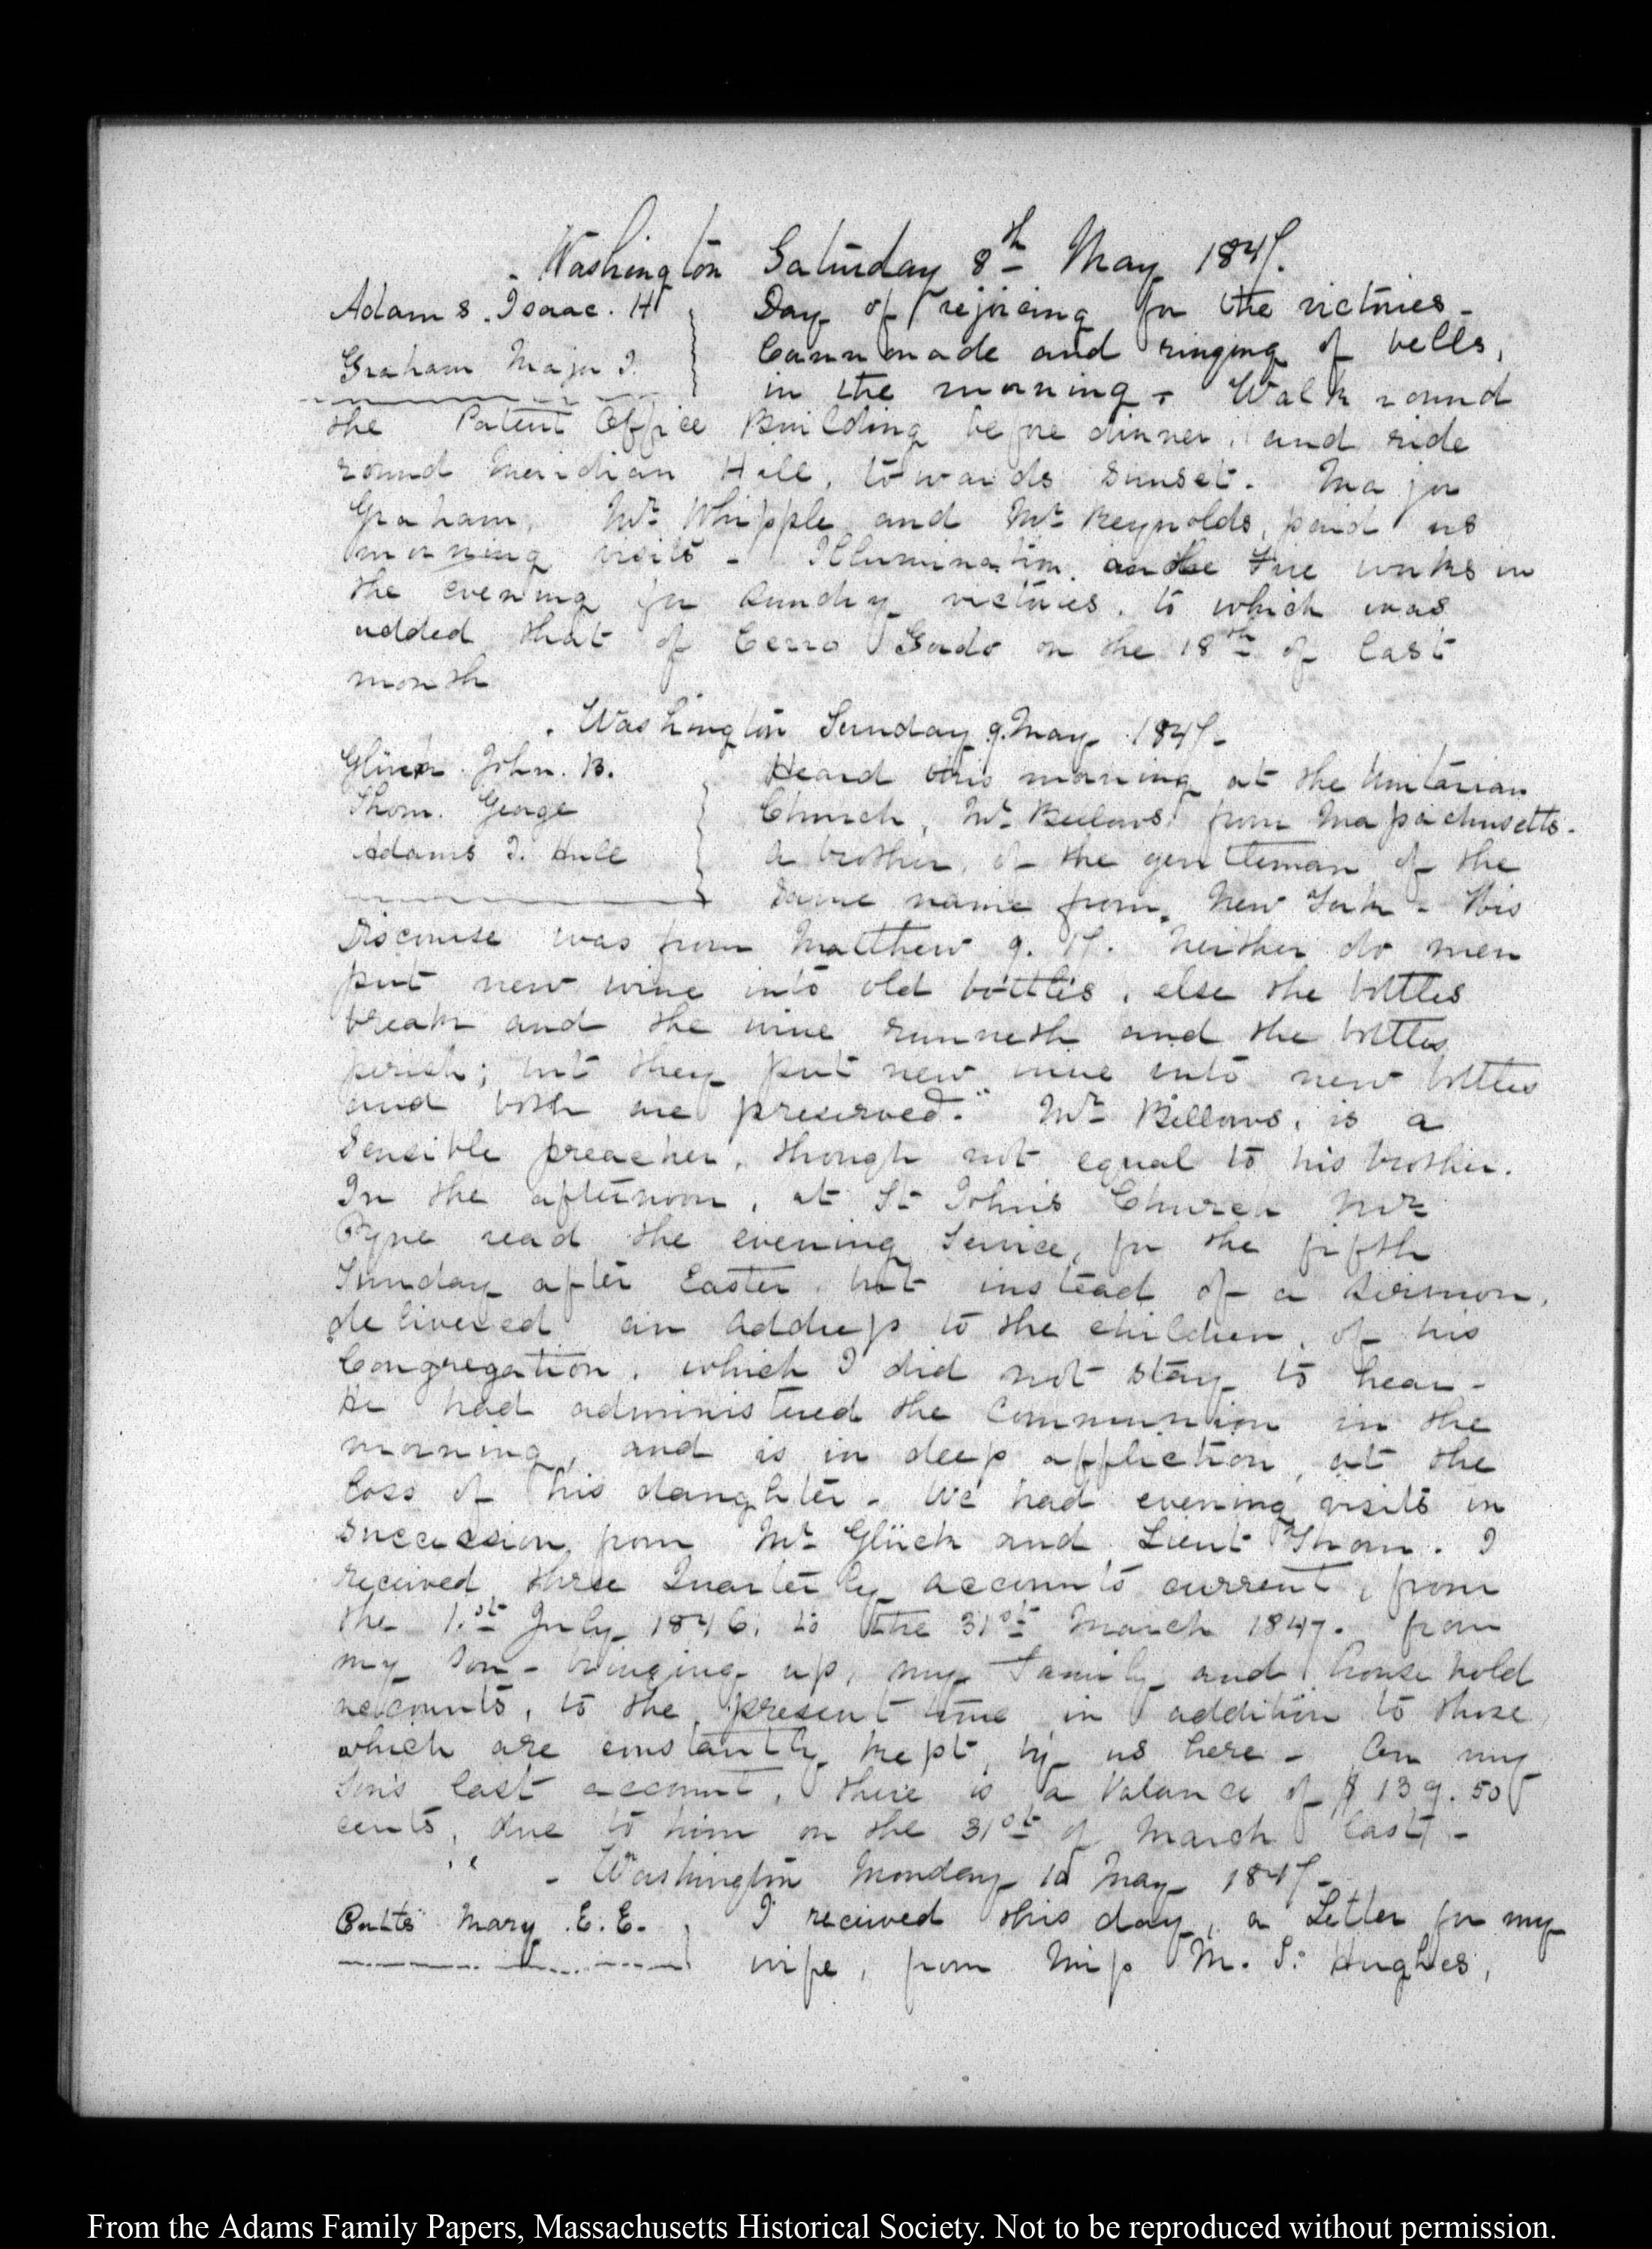 Washington Saturday 8th May 1847.
Adams. Isaac. H
Graham Major J.
Day of rejoicing for the victories -
Cannonade and ringing of bells,
in the morning - Walk round
the Patent Office Building before dinner, and ride
round Meridian Hill, towards sunset. Major
Graham, Mr Whipple and Mr Reynolds, paid us
morning visits - Illumination and Fire works in
the evening for sundry victories, to which was
added that of Cerro Gordo on the 18th of last
month
Washington Sunday 9. May 1847-
Glück. John. B.
Thom. George
Adams I. Hull
Heard this morning at the Unitarian
Church, Mr Bellows from Massachusetts.
a brother, of the gentleman of the
same name from New York - His
Discourse was from Matthew 9. 17. Neither do men
put new wine into old bottles, else the bottles
break and the wine runneth and the bottles
perish; but they put new wine into new bottles
and both are preserved." Mr Bellows, is a
sensible preacher, though not equal to his brother.
In the afternoon, at St John's Church Mr
Pyne read the evening service, for the fifth
Sunday after Easter, but instead of a sermon,
delivered an address to the children, of his
Congregation, which I did not stay to hear -
He had administered the Communion in the
morning, and is in deep affliction, at the
loss of his daughter - We had evening visits in
succession from Mr Glück and Lieut Thom. I
received three Quarterly accounts current, from
the 1.st July 1846. to the 31st March 1847. from
my Son - bringing up, my Family and house hold
accounts, to the present time in addition to those
which are constantly kept, by us here - On my
Son's last account, there is a balance of $139.50
cents, due to him on the 31st of March last -
Washington Monday 10 May 1847-
Cutts Mary .E.E.
I received this day, a Letter for my
wife, from Miss M. S. Hughes,
From the Adams Family Papers, Massachusetts Historical Society. Not to be reproduced without permission.